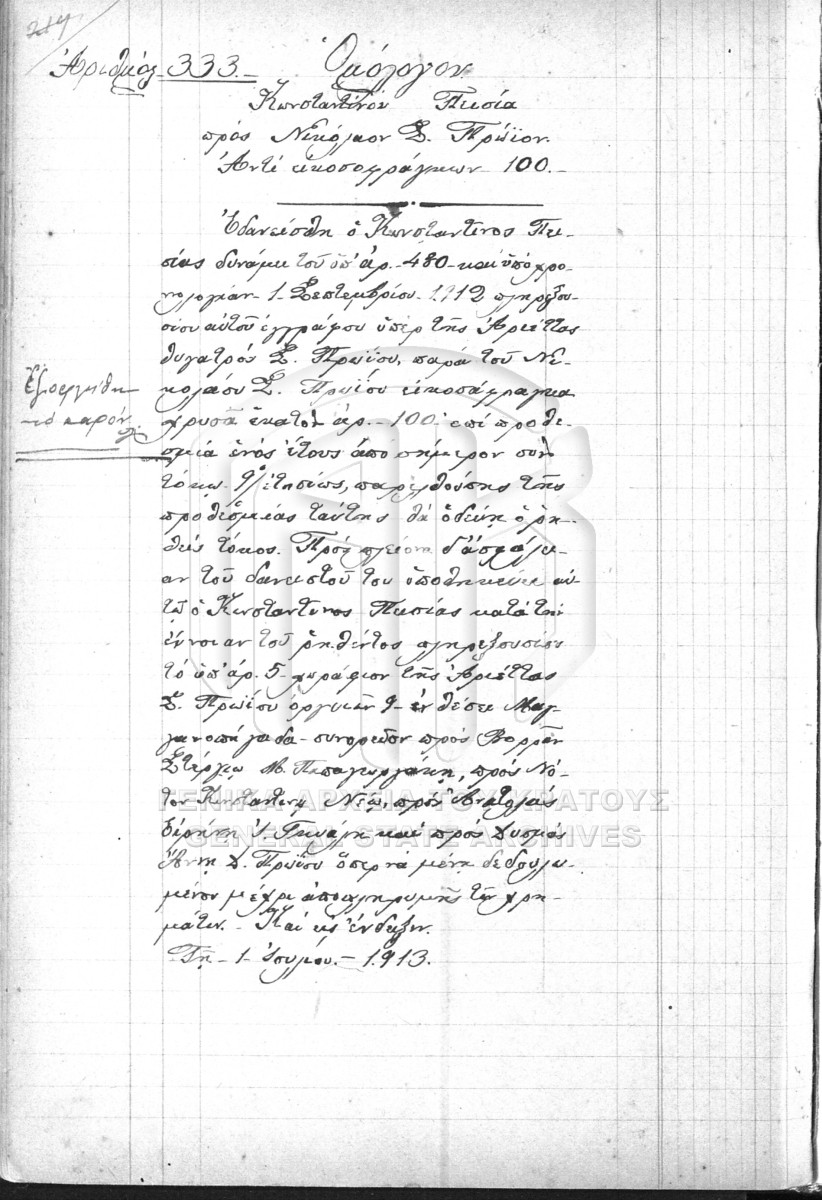 214
Ἀριθμὸς 333.- Ὁμόλογον
Κωνσταντίνου Πισία
πρὸς Νικόλαον Σ. Πρώϊον.
Ἀντὶ εἰκοσοφράγκων 100.-
Ἐδανείσθη ὁ Κωνσταντῖνος Πι-
σίας δυνάμει τοῦ ὑπ' ἀρ. 480 καὶ ὑπὸ χρο-
νολογίαν 1 Σεπτεμβρίου 1912 πληρεξου-
σίου αὐτοῦ ἐγγράφου ὑπὲρ τῆς Ἀριέττας
θυγατρὸς Σ. Πρωΐου, παρὰ τοῦ Νι-
κολάου Σ. Πρωΐου εἰκοσάφραγκα
χρυσᾶ ἑκατὸν ἀρ. 100 ἐπὶ προθε-
σμίᾳ ἑνὸς ἔτους ἀπὸ σήμερον σὺν
τόκῳ 9% ἐτησίως, παρελθούσης τῆς
προθεσμίας ταύτης θὰ ὁδεύῃ ὁ ῥη-
θεὶς τόκος. Πρὸς πλείονα δ' ἀσφάλει-
αν τοῦ δανειστοῦ του ὑποθηκεύει αὐ-
τῷ ὁ Κωνσταντῖνος Πισίας κατὰ τὴν
ἔννοιαν τοῦ ῥηθέντος πληρεξουσίου
τὸ ὑπ' ἀρ. 5 χωράφιον τῆς Ἀριέττας
Σ. Πρωΐου ὀργυιῶν 9 ἐν θέσει Μαγ-
γανοπήγαδα συνορεῦον πρὸς Βορρᾶν
Στέργῳ Μ. Παπαγεωργάκη, πρὸς Νό-
τον Κωνσταντίνῳ, πρὸς Ἀνατολὰς
Εἰρήνῃ καὶ πρὸς Δυσμὰς
Ἄννῃ Σ. Πρωΐου ὅπερ νὰ μένῃ δεδουλω-
μένον μέχρι ἀποπληρωμῆς τῶν χρη-
μάτων.- Καὶ εἰς ἔνδειξιν.
Τῇ 1 Ἰουλίου.- 1913.
Ἐξωφλήθη
τὸ παρόν
ΓΕΝΙΚΑ ΑΡΧΕΙΑ ΤΟΥ ΚΡΑΤΟΥΣ
GENERAL STATE ARCHIVES